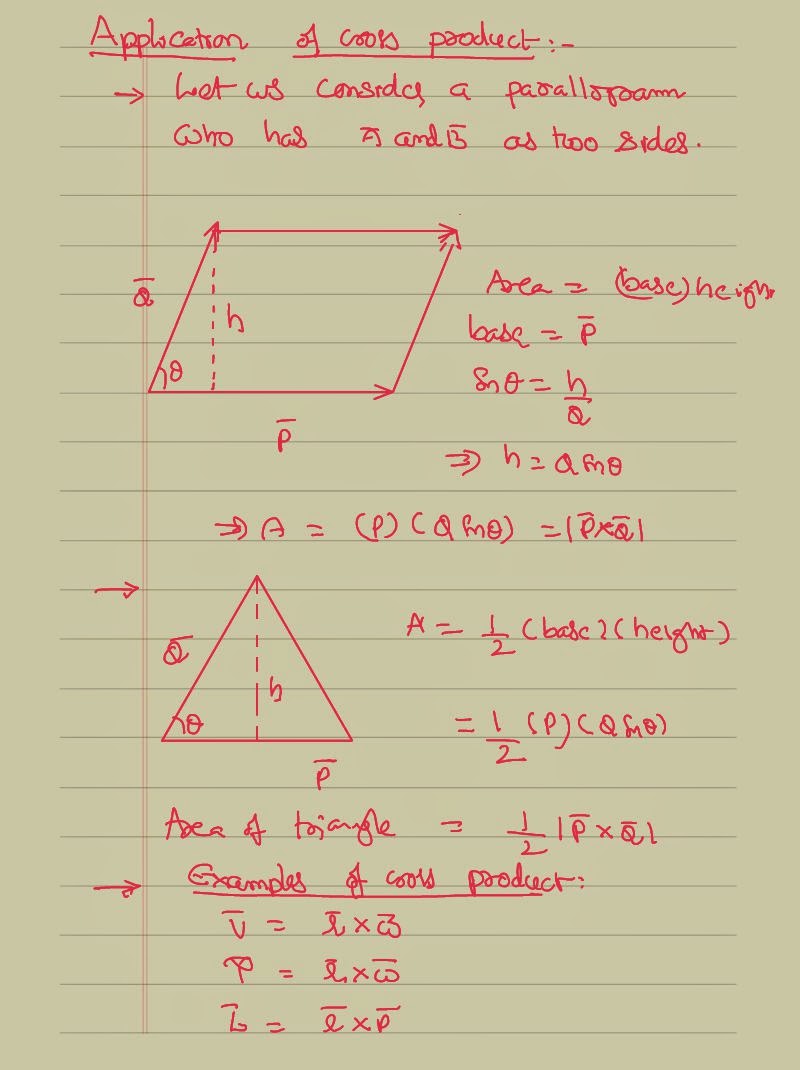 Application of cross product:-
→ Let us consider a parallogram
who has A̅ and B̅ as two sides.
Q̅
h
θ
P̅
Area = (base) height
base = P̅
Sinθ = h/Q
⇒ h = Q Sinθ
⇒ A = (P) (Q Sinθ) = |P̅×Q̅|
→
Q̅
h
θ
P̅
A = 1/2 (base) (height)
= 1/2 (P) (Q Sinθ)
Area of triangle = 1/2 |P̅ × Q̅|
→ Examples of cross product:
V̅ = r̅ × ω̅
τ̅ = r̅ × ω̅
L̅ = r̅ × P̅